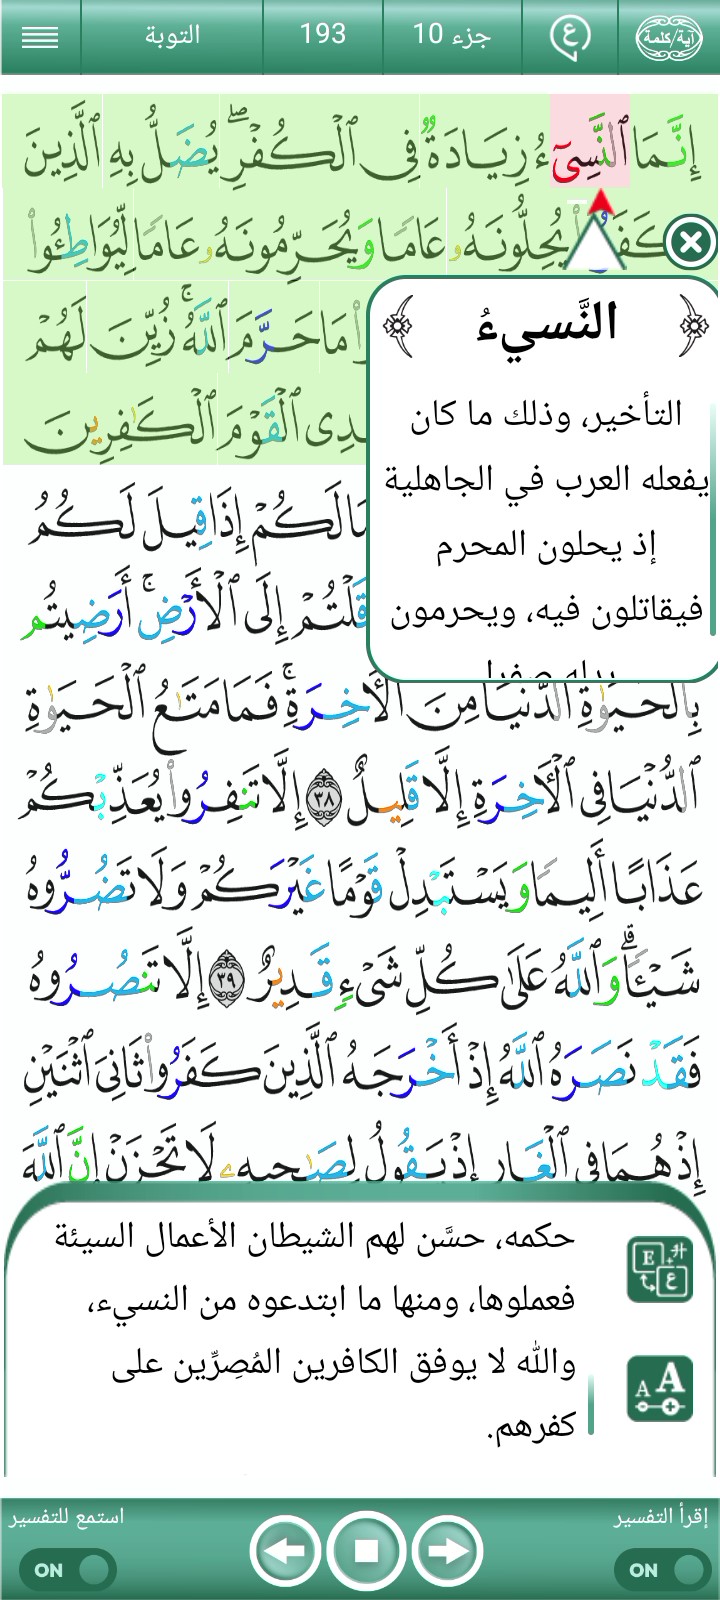 آية/كلمة
ع
جزء 10
193
التوبة
إِنَّمَا ٱلنَّسِىٓءُ زِيَادَةٌ فِى ٱلْكُفْرِ ۖ يُضَلُّ بِهِ ٱلَّذِينَ
يُحِلُّونَهُۥ عَامًا وَيُحَرِّمُونَهُۥ عَامًا لِّيُوَاطِـُٔوا۟
مَا حَرَّمَ ٱللَّهُ ۚ زُيِّنَ لَهُمْ
ٱلْقَوْمَ ٱلْكَٰفِرِينَ
النَّسيءُ
التأخير، وذلك ما كان
يفعله العرب في الجاهلية
إذ يحلون المحرم
فيقاتلون فيه، ويحرمون
مَا لَكُمْ إِذَا قِيلَ لَكُمُ
إِلَى ٱلْأَرْضِ ۚ أَرَضِيتُم
بِٱلْحَيَوٰةِ ٱلدُّنْيَا مِنَ ٱلْـَٔاخِرَةِ ۚ فَمَا مَتَٰعُ ٱلْحَيَوٰةِ
ٱلدُّنْيَا فِى ٱلْـَٔاخِرَةِ إِلَّا قَلِيلٌ ٣٨ إِلَّا تَنفِرُوا۟ يُعَذِّبْكُمْ
عَذَابًا أَلِيمًا وَيَسْتَبْدِلْ قَوْمًا غَيْرَكُمْ وَلَا تَضُرُّوهُ
شَيْـًٔا ۗ وَٱللَّهُ عَلَىٰ كُلِّ شَىْءٍ قَدِيرٌ ٣٩ إِلَّا تَنصُرُوهُ
فَقَدْ نَصَرَهُ ٱللَّهُ إِذْ أَخْرَجَهُ ٱلَّذِينَ كَفَرُوا۟ ثَانِىَ ٱثْنَيْنِ
إِذْ هُمَا فِى ٱلْغَارِ إِذْ يَقُولُ لِصَٰحِبِهِۦ لَا تَحْزَنْ إِنَّ ٱللَّهَ
حكمه، حسَّن لهم الشيطان الأعمال السيئة
فعملوها، ومنها ما ابتدعوه من النسيء،
والله لا يوفق الكافرين المُصِرِّين على
كفرهم.
إقرأ التفسير
استمع للتفسير
ON
ON